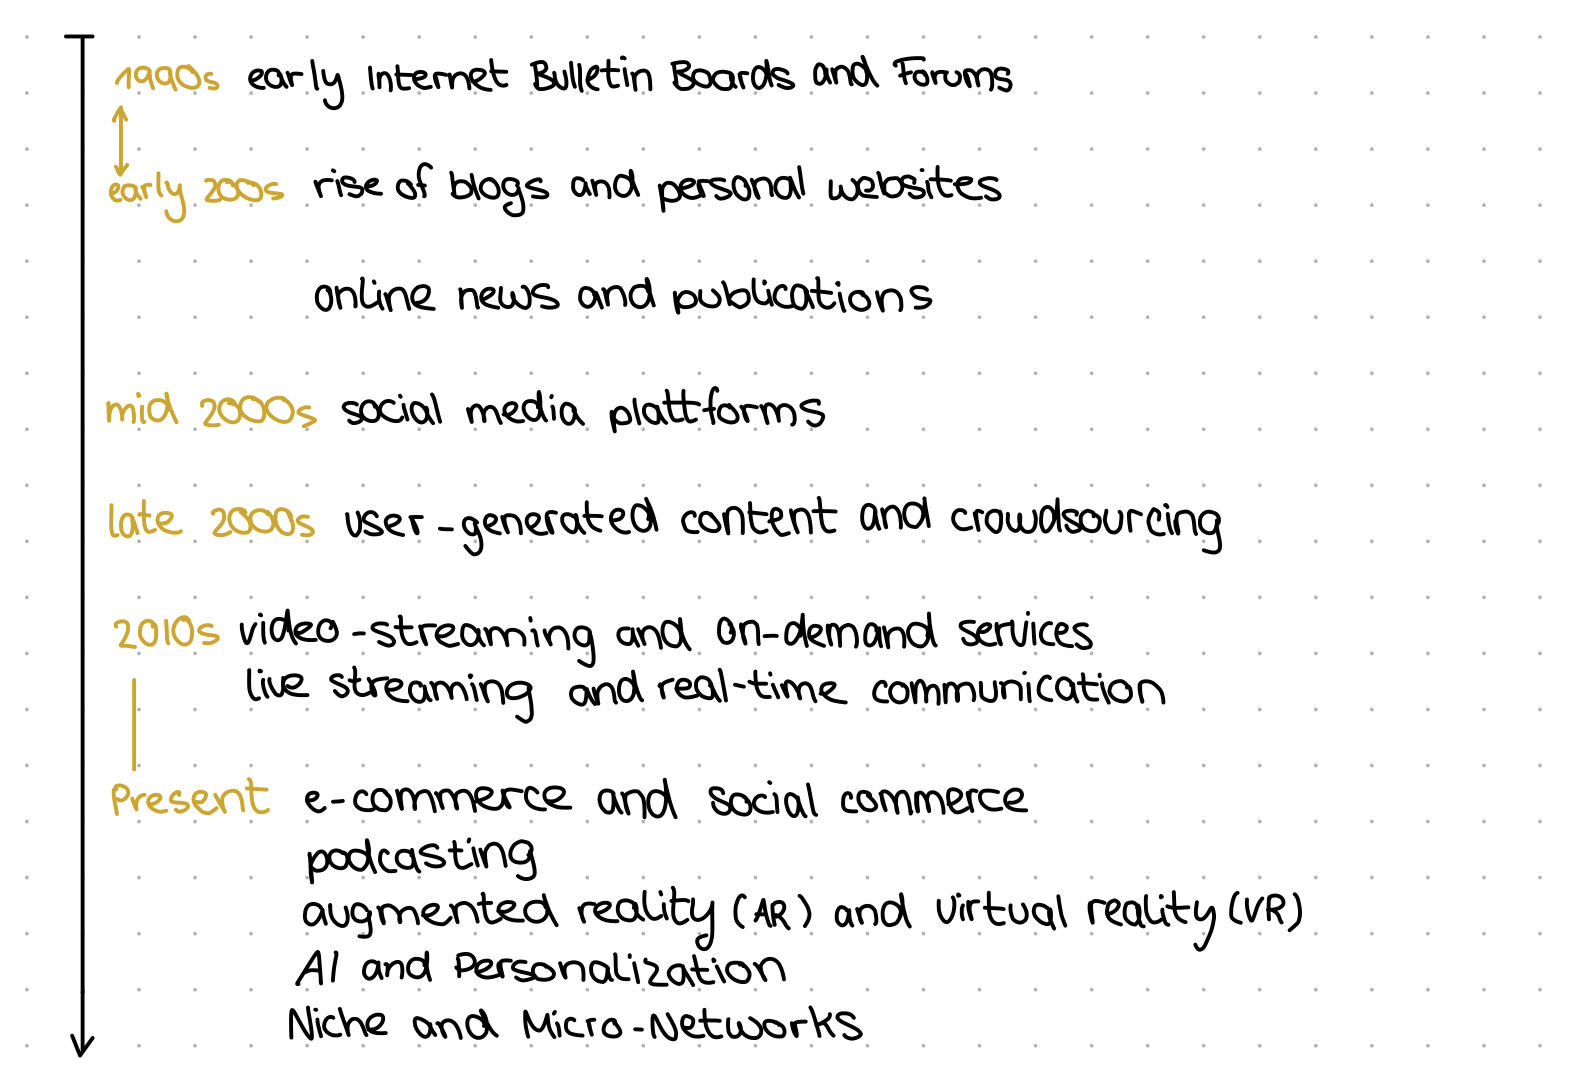 1990s early Internet Bulletin Boards and Forums
early 2000s rise of blogs and personal websites
online news and publications
mid 2000s social media plattforms
late 2000s user-generated content and crowdsourcing
2010s video-streaming and on-demand services
live streaming and real-time communication
Present e-commerce and social commerce
podcasting
augmented reality (AR) and virtual reality (VR)
AI and Personalization
Niche and Micro-Networks